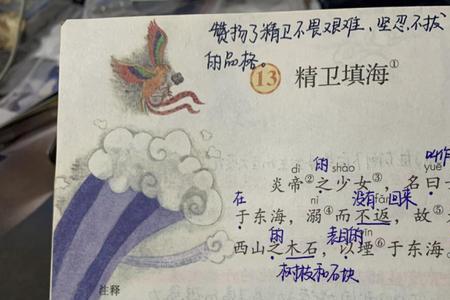 赞扬了精卫不畏艰难、坚忍不拔
的品格。
13 精卫填海①
叫作
dì 的 shào yuē
炎帝②之少女③，名曰
在 nì 没有 fǎn 回来
于东海，溺④而不返，故⑤
的 表目的 yīn
西山之木石，以堙⑥于东海。
树枝和石块
注释